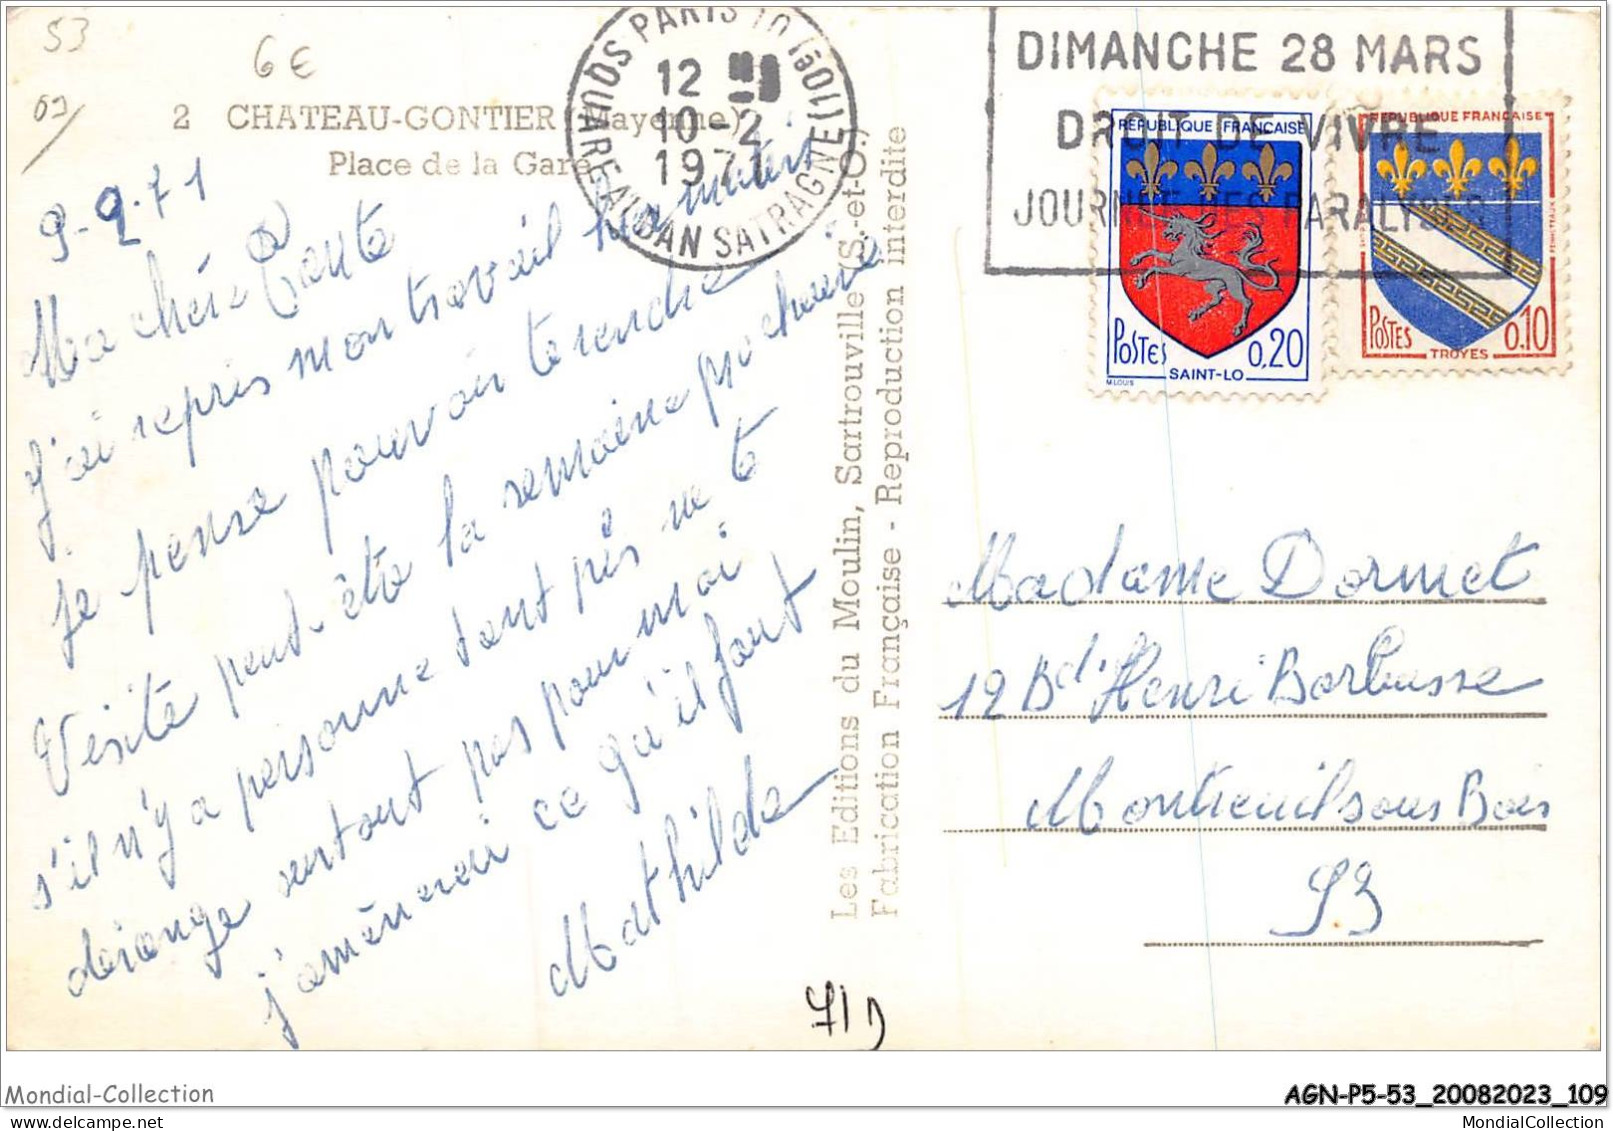 53
6 €
2 CHATEAU-GONTIER (Mayenne)
Place de la Gare
9-2-71
Ma chère Tante
J'ai repris mon travail ce matin
je pense pouvoir te rendre
Visite peut-être la semaine prochaine
s'il n'y a personne tant pis ne te
dérange surtout pas pour moi
j'amènerai ce qu'il faut
Mathilde
Les Editions du Moulin, Sartrouville (S.-et-O.)
Fabrication Française - Reproduction interdite
PARIS
12
10-2
1971
DIMANCHE 28 MARS
DROIT DE VIVRE
JOURNEE DES PARALYSES
REPUBLIQUE FRANCAISE
POSTES 0,20
SAINT-LO
M.LOUIS
REPUBLIQUE FRANCAISE
POSTES 0.10
TROYES
Madame Dormet
12 Bd Henri Barbusse
Montreuil sous Bois
93
Mondial-Collection
AGN-P5-53_20082023_109
MondialCollection